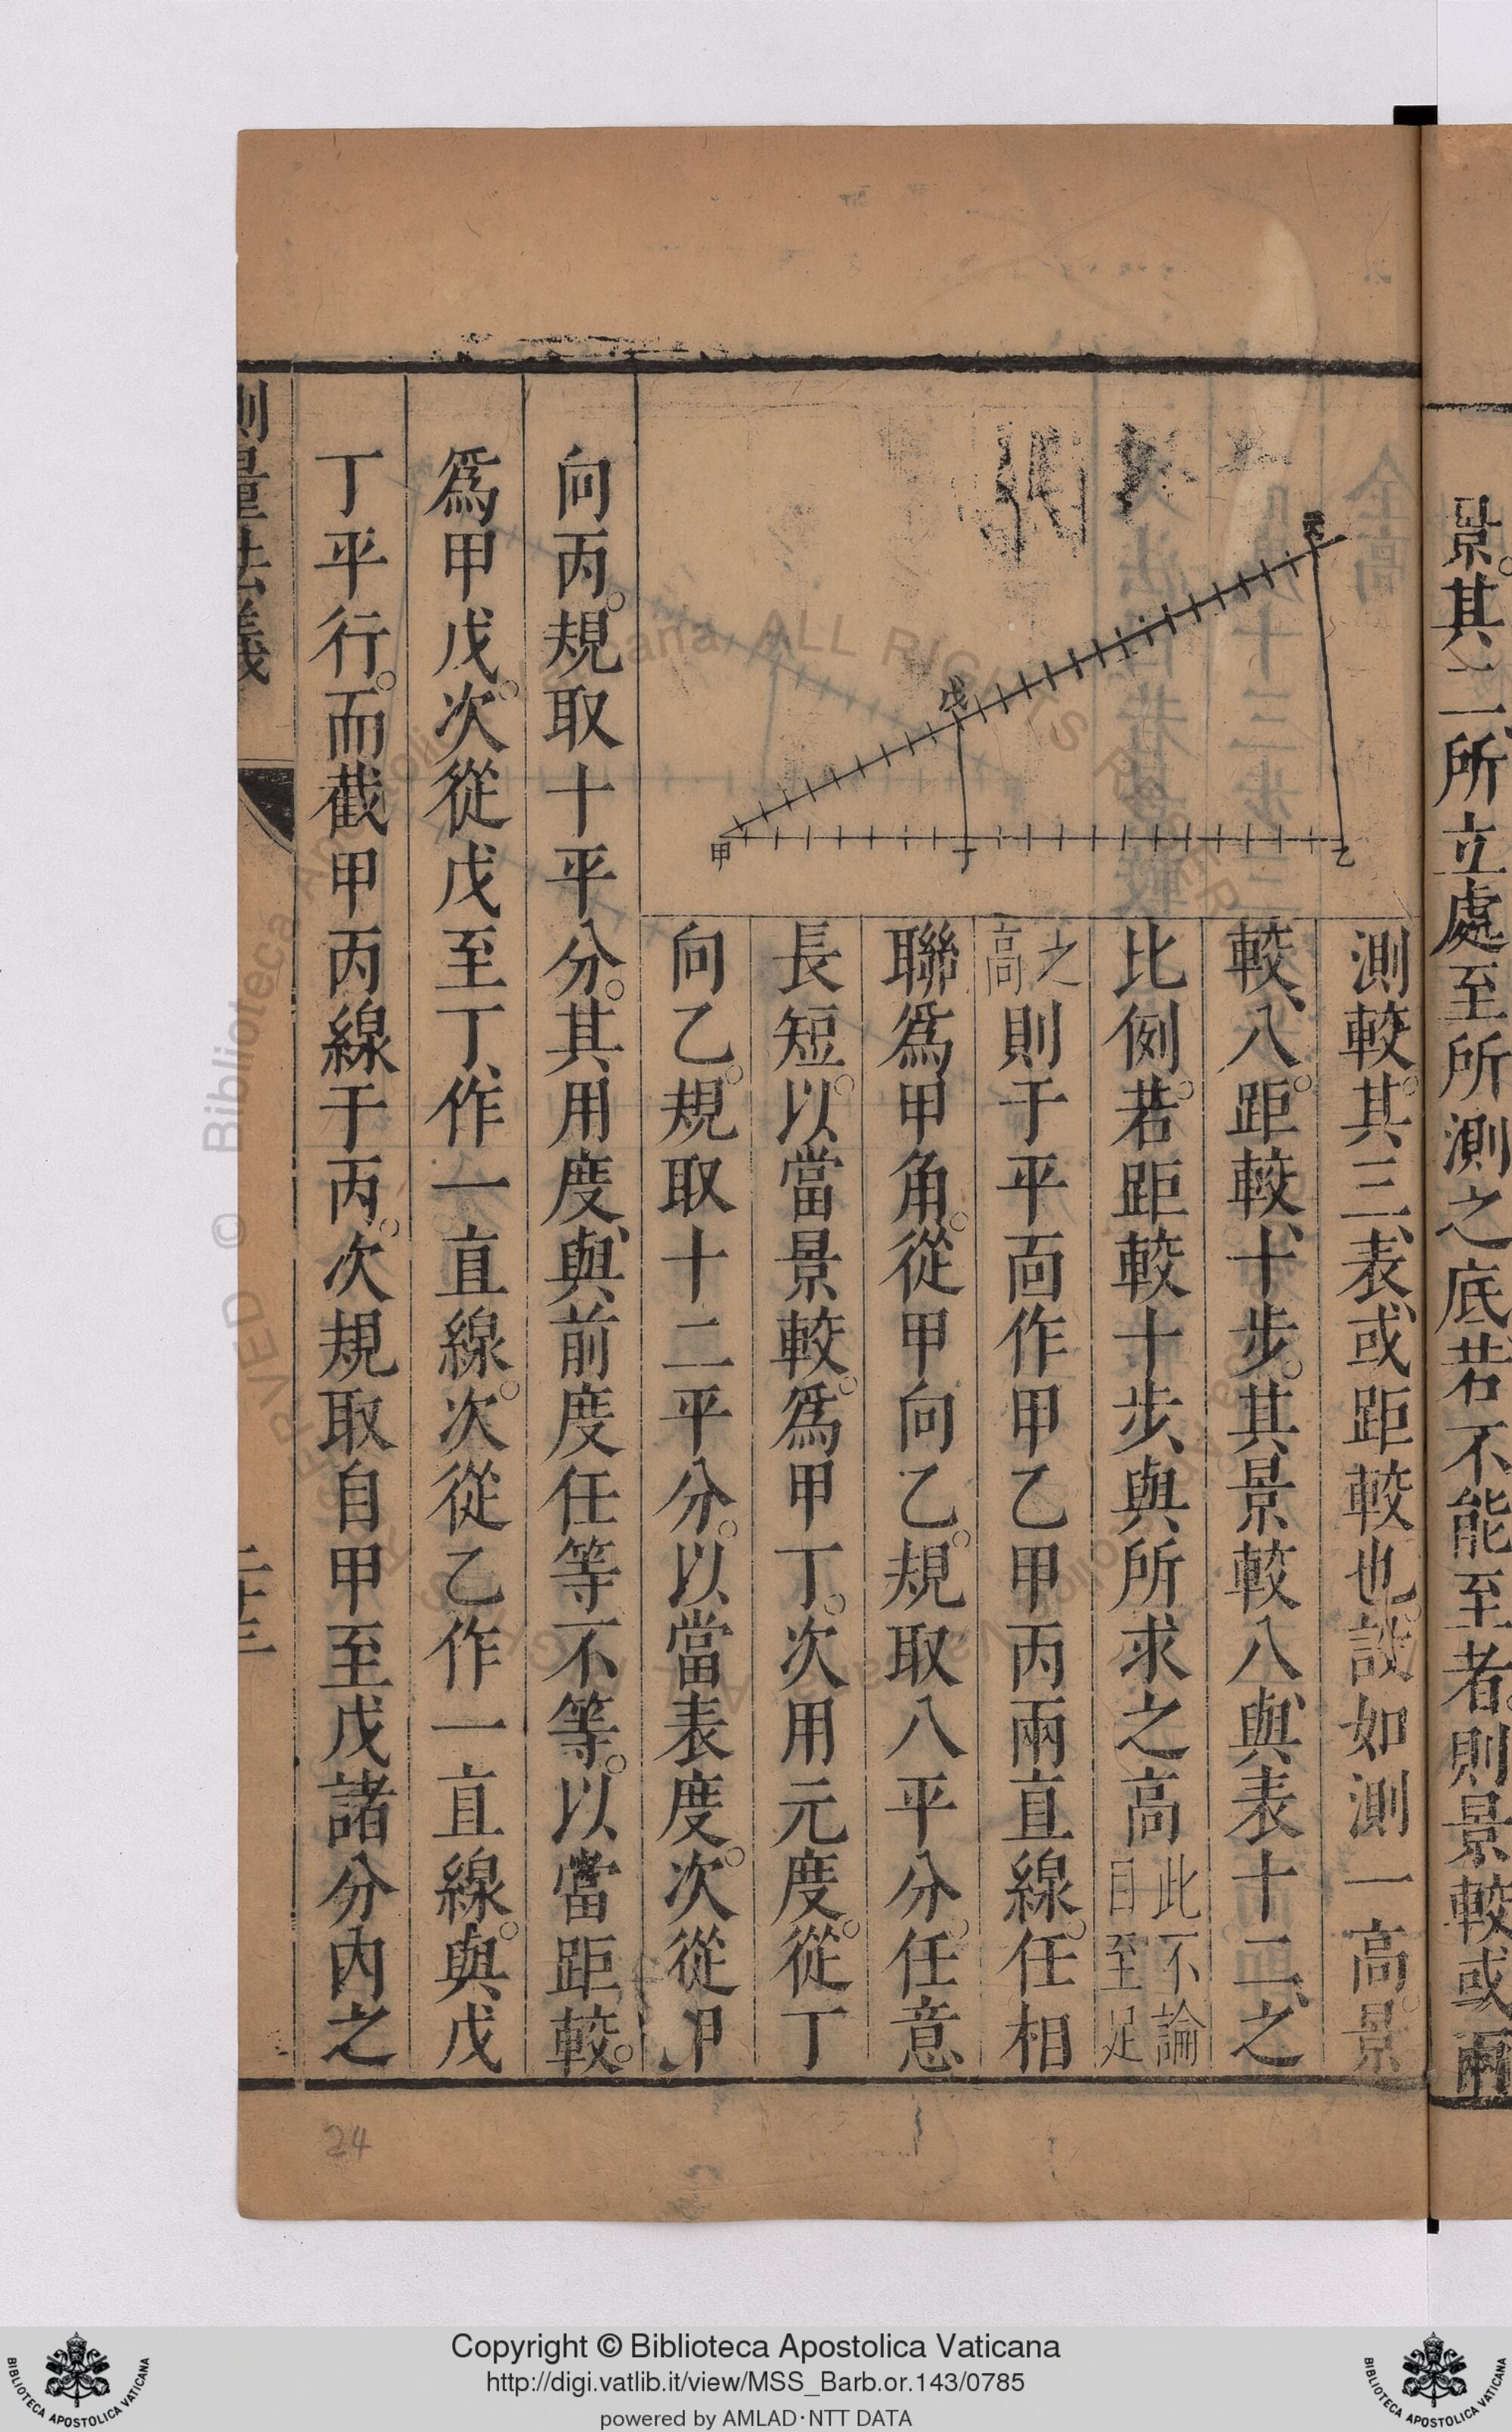 景。其二、所立處至所測之底。若不能至者。則景較或兩
測較。其三、表、或距較也。設如測一高。景
較、八。距較、十步。其景較八、與表十二、之
比例。若距較十步、與所求之高此不論目至足
之高則于平面作甲乙甲丙兩直線。任相
聯爲甲角。從甲向乙。規取八平分。任意
長短。以當景較。爲甲丁。次用元度。從丁
向乙。規取十二平分。以當表度。次從甲
向丙。規取十平分。其用度、與前度任等不等。以當距較。
爲甲戊。次從戊至丁、作一直線。次從乙作一直線。與戊
丁平行。而截甲丙線于丙。次規取自甲至戊諸分內之
丙
戊
甲
丁
乙
測量法義
二十三
24
© Biblioteca Apostolica Vaticana ALL RIGHTS RESERVED
Copyright © Biblioteca Apostolica Vaticana
http://digi.vatlib.it/view/MSS_Barb.or.143/0785
powered by AMLAD·NTT DATA
BIBLIOTECA APOSTOLICA VATICANA
BIBLIOTECA APOSTOLICA VATICANA